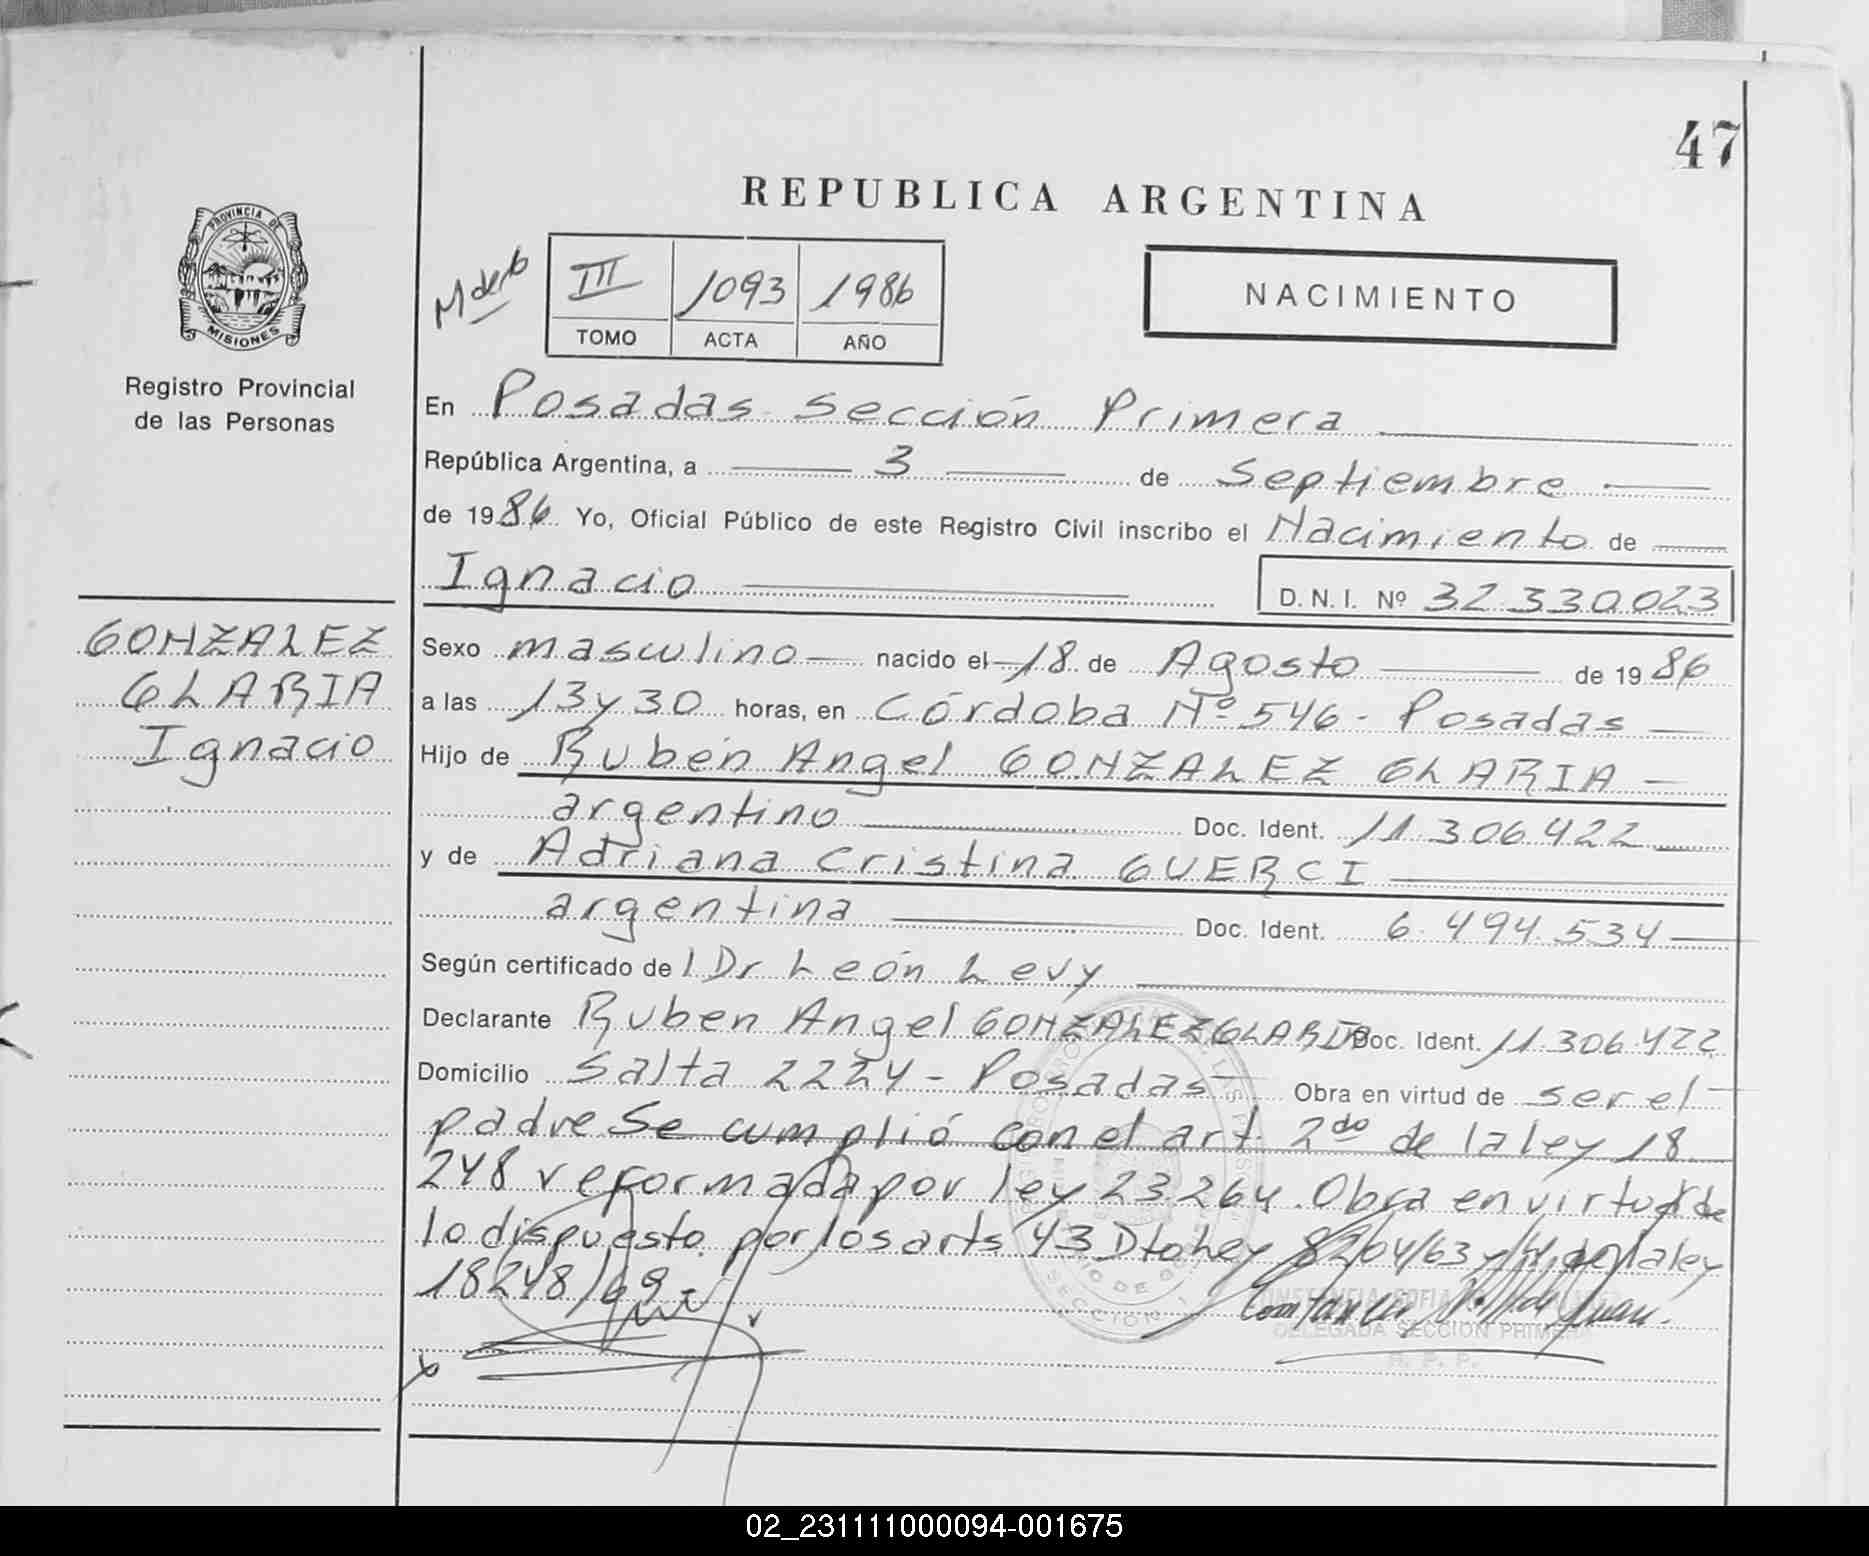 47
REPUBLICA ARGENTINA
PROVINCIA DE
MISIONES
Registro Provincial
de las Personas
III 1093 1986
TOMO ACTA AÑO
NACIMIENTO
En Posadas Sección Primera
República Argentina, a 3 de Septiembre
de 1986 Yo, Oficial Público de este Registro Civil inscribo el Nacimiento de
Ignacio D.N.I. Nº 32.330.023
GONZALEZ
GLARIA
Ignacio
Sexo masculino nacido el 18 de Agosto de 1986
a las 13 y 30 horas, en Córdoba Nº 546 - Posadas
Hijo de Rubén Angel GONZALEZ GLARIA
argentino Doc. Ident. 11.306.422
y de Adriana Cristina GUERCI
argentina Doc. Ident. 6.494.534
Según certificado del Dr León Levy
Declarante Ruben Angel GONZALEZ GLARIA Doc. Ident. 11.306.422
Domicilio Salta 2224 - Posadas Obra en virtud de ser el
padre Se cumplió con el art. 2do de la ley 18.
248 reformada por ley 23264. Obra en virtud de
lo dispuesto por los arts 43 Dto Ley 8204/63 y de la ley
18248/69
SECCION 1
SOFIA
DELEGADA SECCION PRIMERA
R. P. P.
02_231111000094-001675